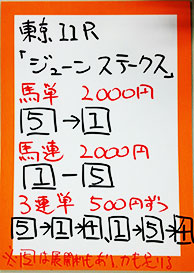 東京11R
「ジューンステークス」
馬単 2000円
5→1
馬連 2000円
1-5
3連単 500円ずつ
5→1→4、1→5→4
※5は展開利もあり力も足りる